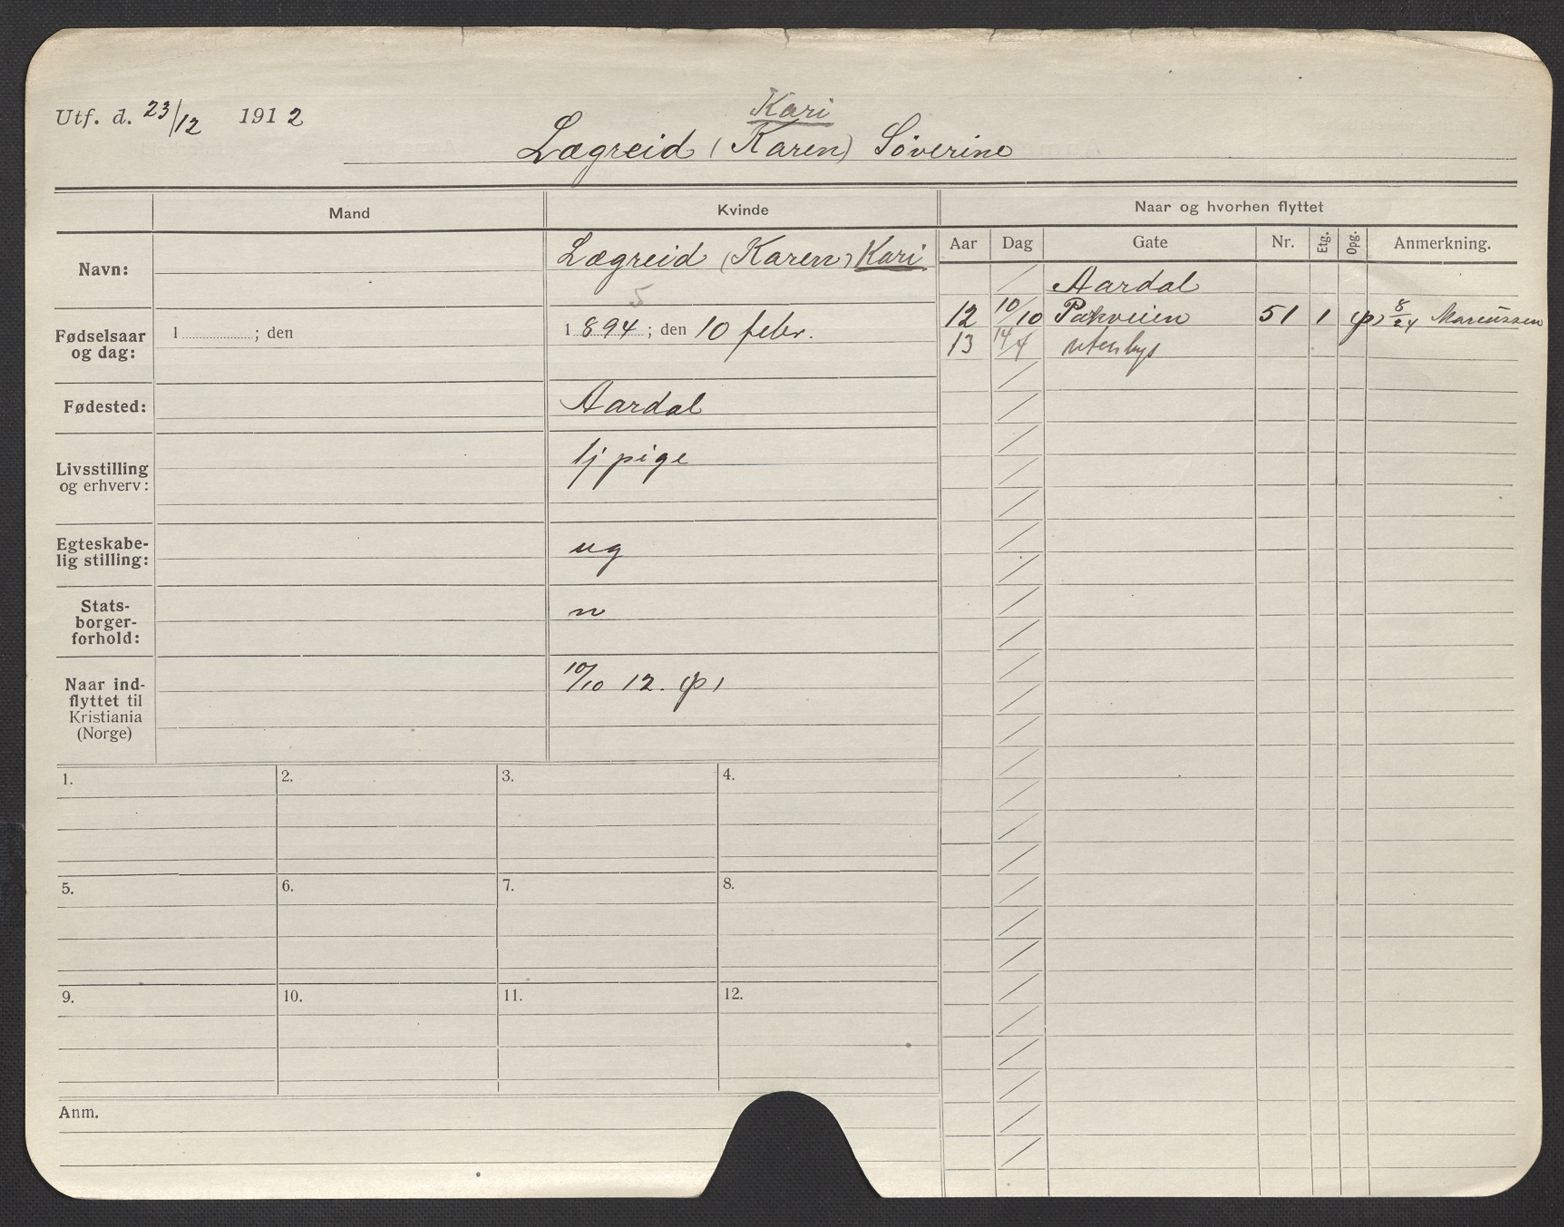 Utf. d. 23/12 1912
Kari
Lægreid (Karen) Søverine
Mand
Kvinde
Naar og hvorhen flyttet
Aar Dag Gate Nr. Etg. Opg. Anmerkning.
Navn: Lægreid (Karen) Kari
Aardal
5
12 10/10 Parkveien 51 1 8/24 Marcussen
Fødselsaar og dag: 1 ; den 1894 ; den 10 febr.
13 14/4 utenbys
Fødested: Aardal
Livsstilling og erhverv: tj pige
Egteskabe-
lig stilling: ug
Stats-
borger-
forhold: n
Naar ind-
flyttet til
Kristiania
(Norge) 10/10 12.
1. 2. 3. 4.
5. 6. 7. 8.
9. 10. 11. 12.
Anm.